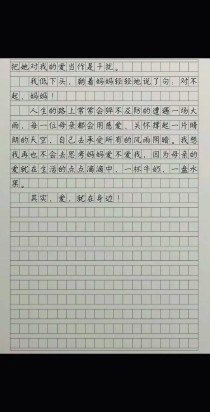 把她对我的爱当作是干扰。
我低下头，朝着妈妈轻轻地说了句，对不
起，妈妈！
人生的路上常常会猝不及防的遭遇一场大
雨，每一位母亲都会用慈爱、关怀撑起一片晴
朗的天空，自己去承受所有的风雨阴暗。我想
我再也不会去思考妈妈爱不爱我，因为母亲的
爱就在生活的点点滴滴中，一杯牛奶，一盘水
果。
其实，爱，就在身边！